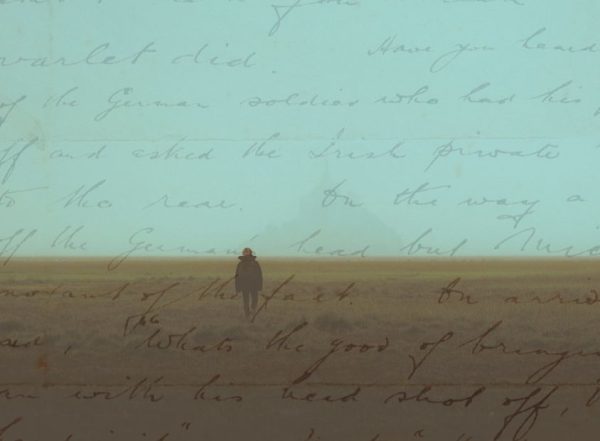 varlet did. Have you heard
of the German soldier who had his
ff and asked the Irish private
to the rear. On the way a
off the German's head but
ignorant of the fact. On
"Whats the good of
an with his head shot off,